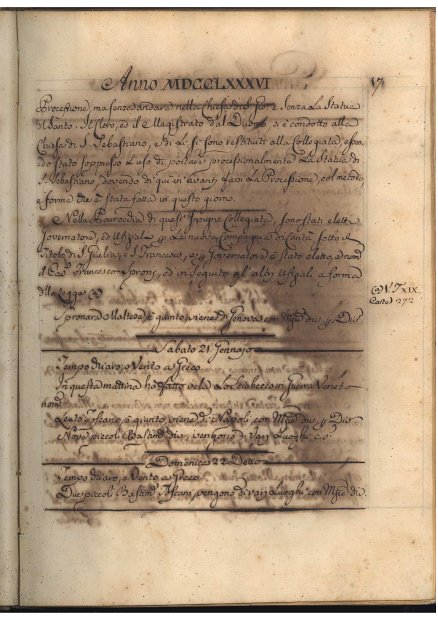 Anno MDCCLXXXVI 17
Processione, ma senza andare nella Chiesa di e senza La Statua
del Santo. Il Clero, ed il Magistrato dal Duomo, si è condotto alla
Chiesa di S. Sebastiano, e di Lì sono restituiti alla Collegiata, essen-
do stato soppresso L'uso di portare processionalmente La Statua di
S. Sebastiano, dovendo di qui in avanti farsi La Processione, col metodo
e forma che è stata fatta in questo giorno.
Nella Parrocchia di quest' Insigne Collegiata, sono stati eletti
Governatore, ed Ufiziali La nuova Compagnia di Carità sotto il
Titolo di S. Giulia, e S. Francesco, e Governatore è stato eletto, a nom
il Cap. Francesco Sproni, ed in seguito gli altri Ufiziali a forma
della Legge (a)
(a) V. T. XIX.
Carte 272
Spronara Maltese è giunto, viene di Genova con Div
Sabato 21. Gennajo
Tempo chiaro, e Vento a Greco
In questa mattina ha fatto vela Lo Sciabecco in Guerra
Leuto Toscano, è giunto, viene di Napoli con Div
Nove piccoli Bastim div. vengono di Varj Luoghi
Domenica 22. Detto
Tempo chiaro, e Vento a Greco
Due piccoli Bastim Toscani, vengono di varj Luoghi con div.